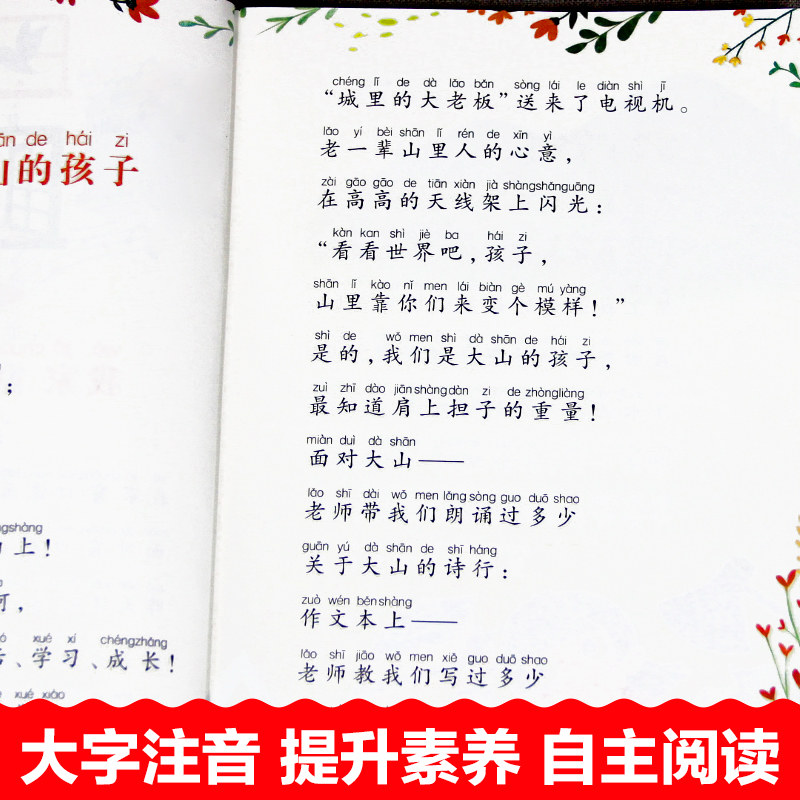 de hái zi
的孩子
;
上!
xué xí chéngzhǎng
、学习、成长!
xué xiào
chéng lǐ de dà lǎo bǎn sòng lái le diàn shì jī
“城里的大老板”送来了电视机。
lǎo yí bèi shān lǐ rén de xīn yì
老一辈山里人的心意,
zài gāo gāo de tiān xiàn jià shàngshǎnguāng
在高高的天线架上闪光:
kàn kan shì jiè ba hái zi
“看看世界吧,孩子,
shān lǐ kào nǐ men lái biàn gè mú yàng
山里靠你们来变个模样!”
shì de wǒ men shì dà shān de hái zi
是的,我们是大山的孩子,
zuì zhī dào jiān shàng dàn zi de zhòngliàng
最知道肩上担子的重量!
miàn duì dà shān
面对大山——
lǎo shī dài wǒ men lǎng sòng guo duō shao
老师带我们朗诵过多少
guān yú dà shān de shī háng
关于大山的诗行:
zuò wén běn shàng
作文本上——
lǎo shī jiāo wǒ men xiě guo duō shao
老师教我们写过多少
大字注音 提升素养 自主阅读